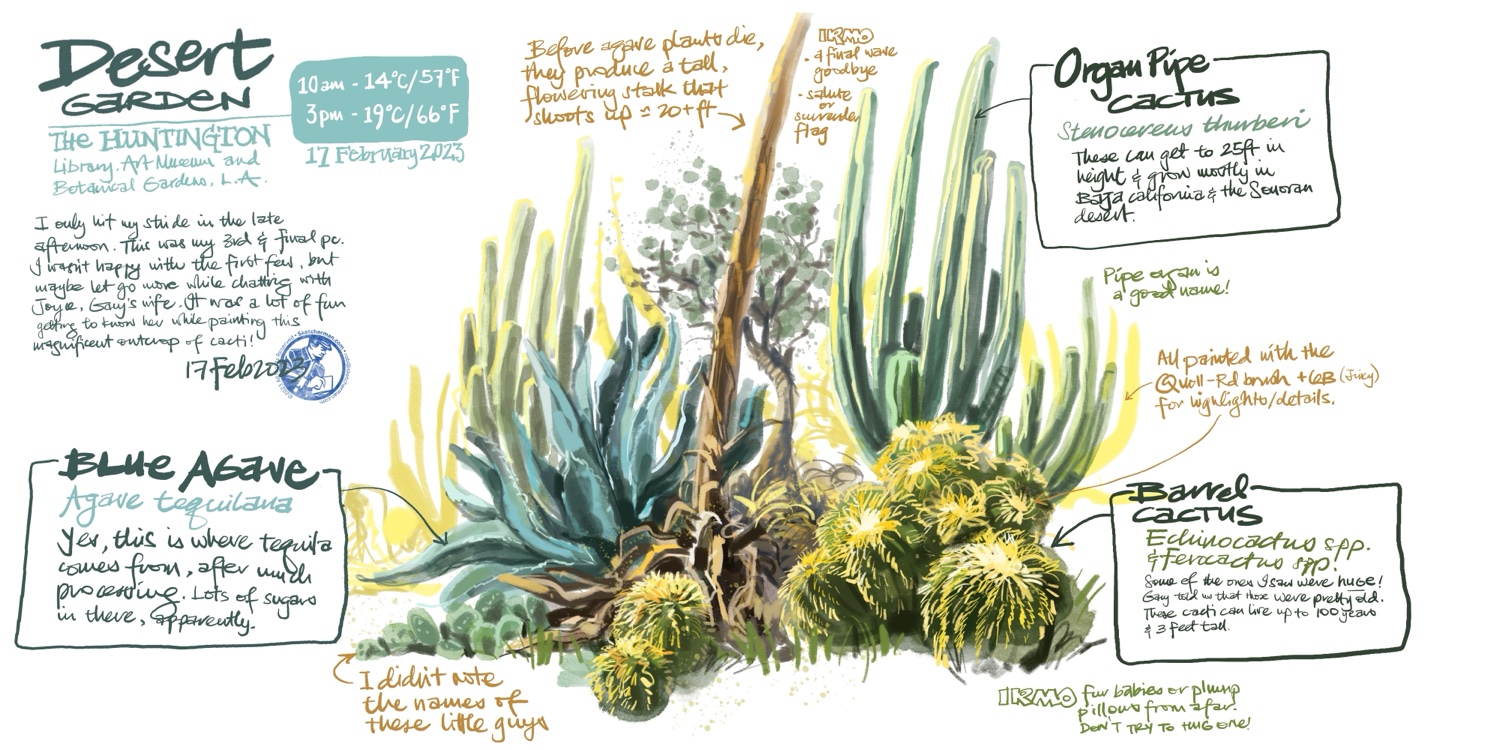 Desert
GARDEN
THE HUNTINGTON
Library, Art Museum and
Botanical Gardens, L.A.
10am - 14°C/57°F
3pm - 19°C/66°F
17 February 2023
I only hit my stride in the late
afternoon. This was my 3rd & final pc.
I wasn't happy with the first few, but
maybe let go more while chatting with
Joyce, Gary's wife. It was a lot of fun
getting to know her while painting this
magnificent outcrop of cacti!
17 Feb 2023
Before agave plants die,
they produce a tall,
flowering stalk that
shoots up ≈ 20+ft
IRMO
- a final wave
goodbye
- salute
or
surrender
flag
Organ Pipe
Cactus
Stenocereus thurberi
These can get to 25ft in
height & grow mostly in
Baja California & the Sonoran
desert.
Pipe organ is
a good name!
All painted with the
Quoll-Rd brush + 6B (Juicy)
for highlights/details.
BLUE AGAVE
Agave tequilana
Yes, this is where tequila
comes from, after much
processing. Lots of sugars
in there, apparently.
Barrel
CACTUS
Echinocactus spp.
& Ferocactus spp.
Some of the ones I saw were HUGE!
Gary told us that those were pretty old.
These cacti can live up to 100 years
& 3 feet tall.
I didn't note
the names of
these little guys
IRMO fur babies or plump
pillows from afar.
DON'T TRY TO HUG ONE!